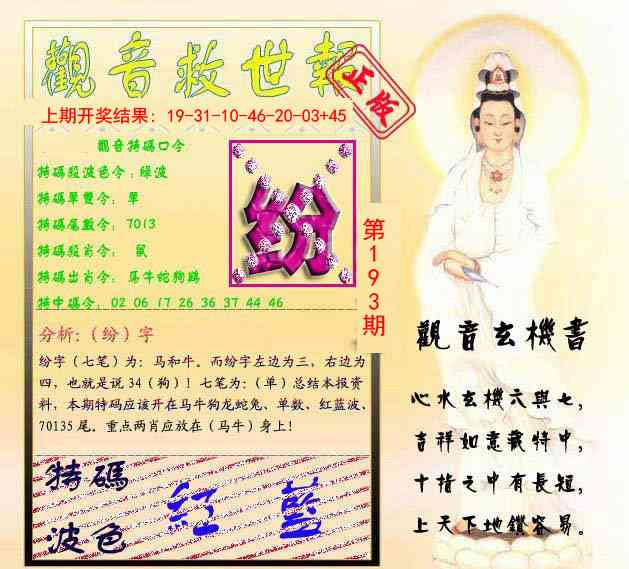 觀音救世報
正版
上期开奖结果：19-31-10-46-20-03+45
觀音特碼口令
特碼段波色令：綠波
特碼單雙令：單
特碼尾數令：7013
特碼段肖令： 鼠
特碼出肖令：馬牛蛇狗鷄
特中碼令：02 06 17 26 36 37 44 46
纷
第193期
分析：（纷）字
纷字（七笔）为：马和牛。而纷字左边为三，右边为
四，也就是说 34（狗）！七笔为：（单）总结本报资
料，本期特码应该开在马牛狗龙蛇兔、单数、红蓝波、
70135 尾。重点两肖应放在（马牛）身上！
特碼
波色
紅 藍
觀音玄機書
心水玄機六與七，
吉祥如意藏特中，
十指之中有長短，
上天下地鑽容易。